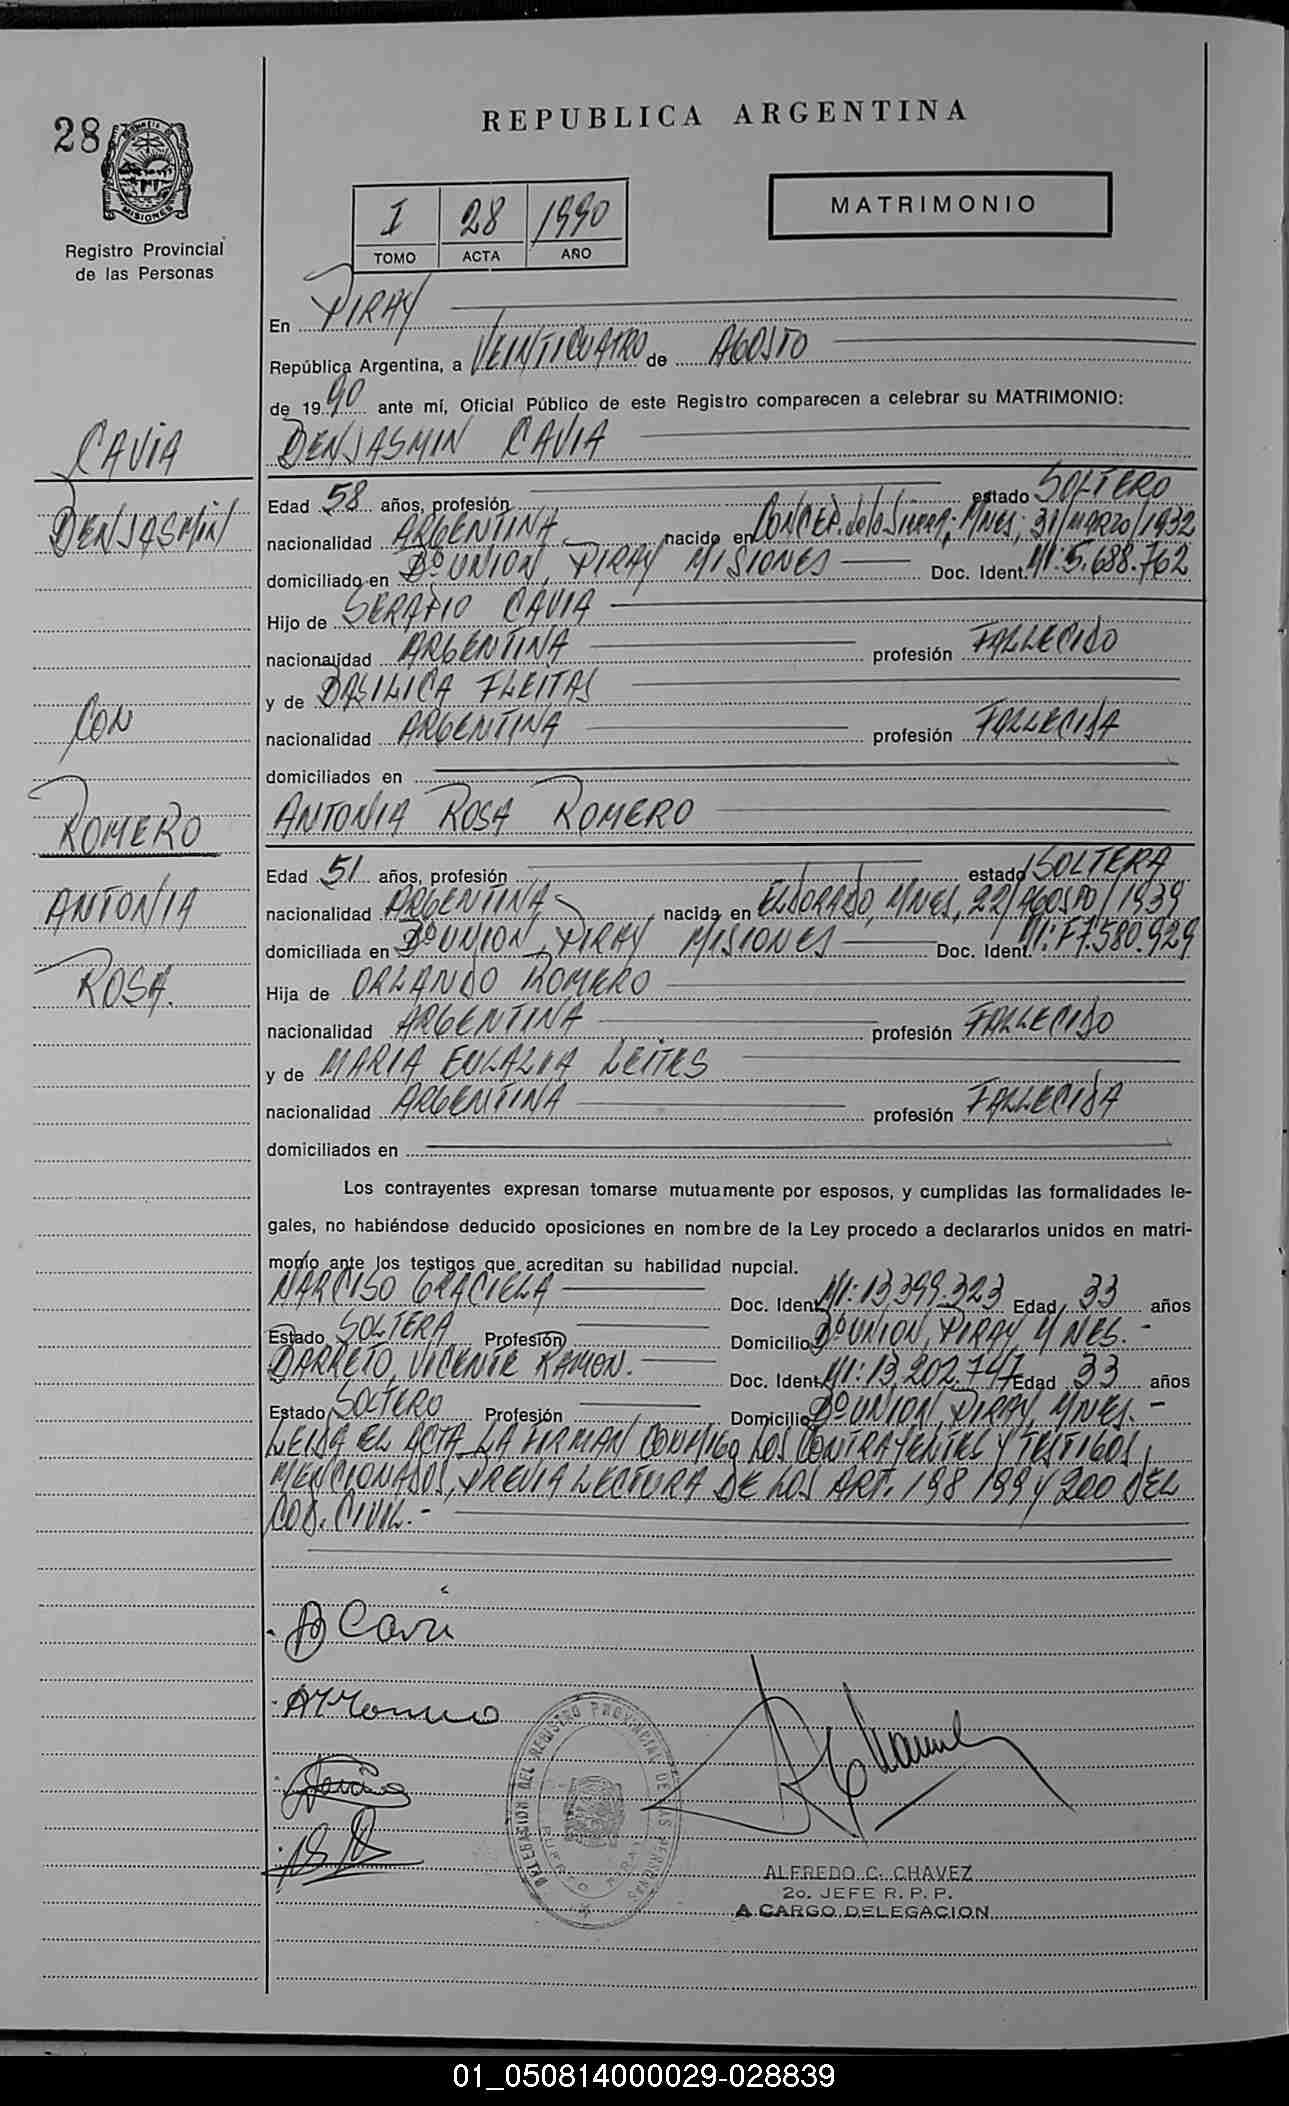 REPUBLICA ARGENTINA
28
MISIONES
Registro Provincial
de las Personas
I 28 1990
TOMO ACTA AÑO
MATRIMONIO
En PIRAY
República Argentina, a VEINTICUATRO de AGOSTO
de 1990 ante mí, Oficial Público de este Registro comparecen a celebrar su MATRIMONIO:
CAVIA
BENJASMIN
CON
ROMERO
ANTONIA
ROSA.
BENJASMIN CAVIA
Edad 58 años, profesión estado SOLTERO
nacionalidad ARGENTINA nacido en CONCEP. de la SIERRA, MNES, 31/MARZO/1932
domiciliado en Bº UNION, PIRAY MISIONES Doc. Ident. MI: 5.688.762
Hijo de SERAPIO CAVIA
nacionalidad ARGENTINA profesión FALLECIDO
y de BASILICA FLEITAS
nacionalidad ARGENTINA profesión FALLECIDA
domiciliados en
ANTONIA ROSA ROMERO
Edad 51 años, profesión estado SOLTERA
nacionalidad ARGENTINA nacida en ELDORADO, MNES, 22/AGOSTO/1939
domiciliada en Bº UNION, PIRAY MISIONES Doc. Ident. MI: F7.580.929
Hija de ORLANDO ROMERO
nacionalidad ARGENTINA profesión FALLECIDO
y de MARIA EULALIA LEITES
nacionalidad ARGENTINA profesión FALLECIDA
domiciliados en
Los contrayentes expresan tomarse mutuamente por esposos, y cumplidas las formalidades le-
gales, no habiéndose deducido oposiciones en nombre de la Ley procedo a declararlos unidos en matri-
monio ante los testigos que acreditan su habilidad nupcial.
NARCISO GRACIELA Doc. Ident. MI: 13.399.323 Edad 33 años
Estado SOLTERA Profesión Domicilio Bº UNION, PIRAY MNES.-
BARRETO, VICENTE RAMON. Doc. Ident. MI: 13.202.747 Edad 33 años
Estado SOLTERO Profesión Domicilio Bº UNION, PIRAY, MNES.-
LEIDA EL ACTA LA FIRMAN CONMIGO LOS CONTRAYENTES Y TESTIGOS
MENCIONADOS, PREVIA LECTURA DE LOS ART. 198 199 Y 200 DEL
COD. CIVIL.-
B Cavia
A R Romero
DELEGACION DEL REGISTRO PROVINCIAL DE LAS PERSONAS
PUERTO PIRAY
ALFREDO C. CHAVEZ
2o. JEFE R. P. P.
A CARGO DELEGACION
01_050814000029-028839